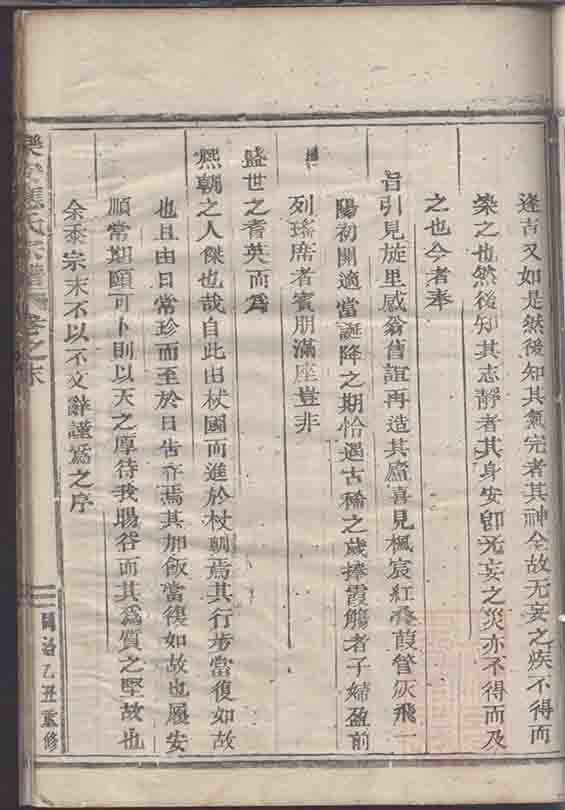 逢吉又如是然後知其氣完者其神全故无妄之疾不得而
染之也然後知其志靜者其身安卽无妄之災亦不得而及
之也今者奉
旨引見旋里感翁舊誼再造其廬喜見楓宸紅叠葭管灰飛一
陽初開適當誕降之期恰遇古稀之歲捧霞觴者子婦盈前
列瑤席者賓朋滿座豈非
盛世之耆英而爲
熙朝之人傑也哉自此由杖國而進於杖朝焉其行步當復如故
也且由日常珍而至於日告存焉其加飯當復如故也履安
順常期頤可卜則以天之厚待我賜谷而其爲質之堅故也
余忝宗末不以不文辭謹爲之序
應氏宗譜 卷之末
同治乙丑重修